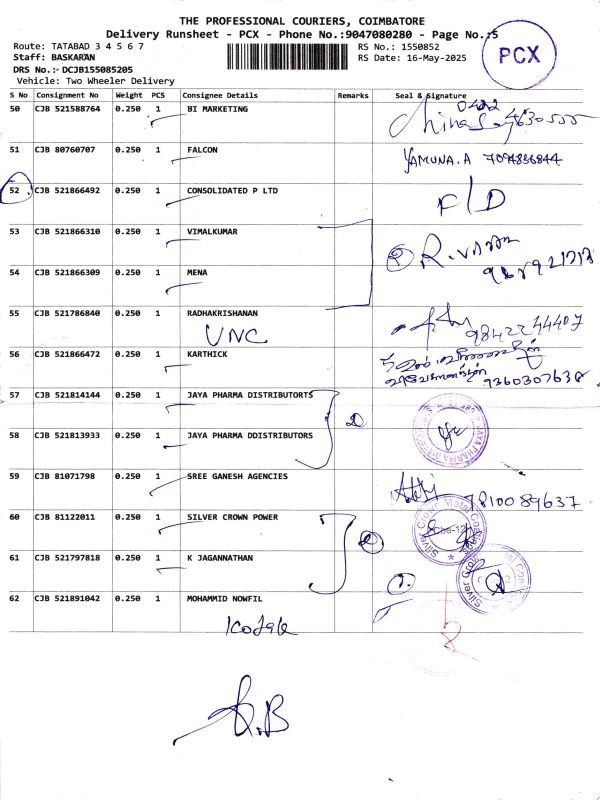 THE PROFESSIONAL COURIERS, COIMBATORE
Delivery Runsheet - PCX - Phone No.:9047080280 - Page No.:5
Route: TATABAD 3 4 5 6 7
RS No.: 1550852
Staff: BASKARAN
RS Date: 16-May-2025
DRS No.:- DCJB155085205
Vehicle: Two Wheeler Delivery
PCX
S No Consignment No Weight PCS Consignee Details Remarks Seal & Signature
50 CJB 521588764 0.250 1 BI MARKETING
0422
4630555
51 CJB 80760707 0.250 1 FALCON YAMUNA.A
52 CJB 521866492 0.250 1 CONSOLIDATED P LTD F/D
53 CJB 521866310 0.250 1 VIMALKUMAR
54 CJB 521866309 0.250 1 MENA
55 CJB 521786840 0.250 1 RADHAKRISHANAN 9842244407
UNC
56 CJB 521866472 0.250 1 KARTHICK
57 CJB 521814144 0.250 1 JAYA PHARMA DISTRIBUTORTS
58 CJB 521813933 0.250 1 JAYA PHARMA DDISTRIBUTORS
59 CJB 81071798 0.250 1 SREE GANESH AGENCIES 7810089637
60 CJB 81122011 0.250 1 SILVER CROWN POWER
Silver Crown Metal
61 CJB 521797818 0.250 1 K JAGANNATHAN
62 CJB 521891042 0.250 1 MOHAMMID NOWFIL